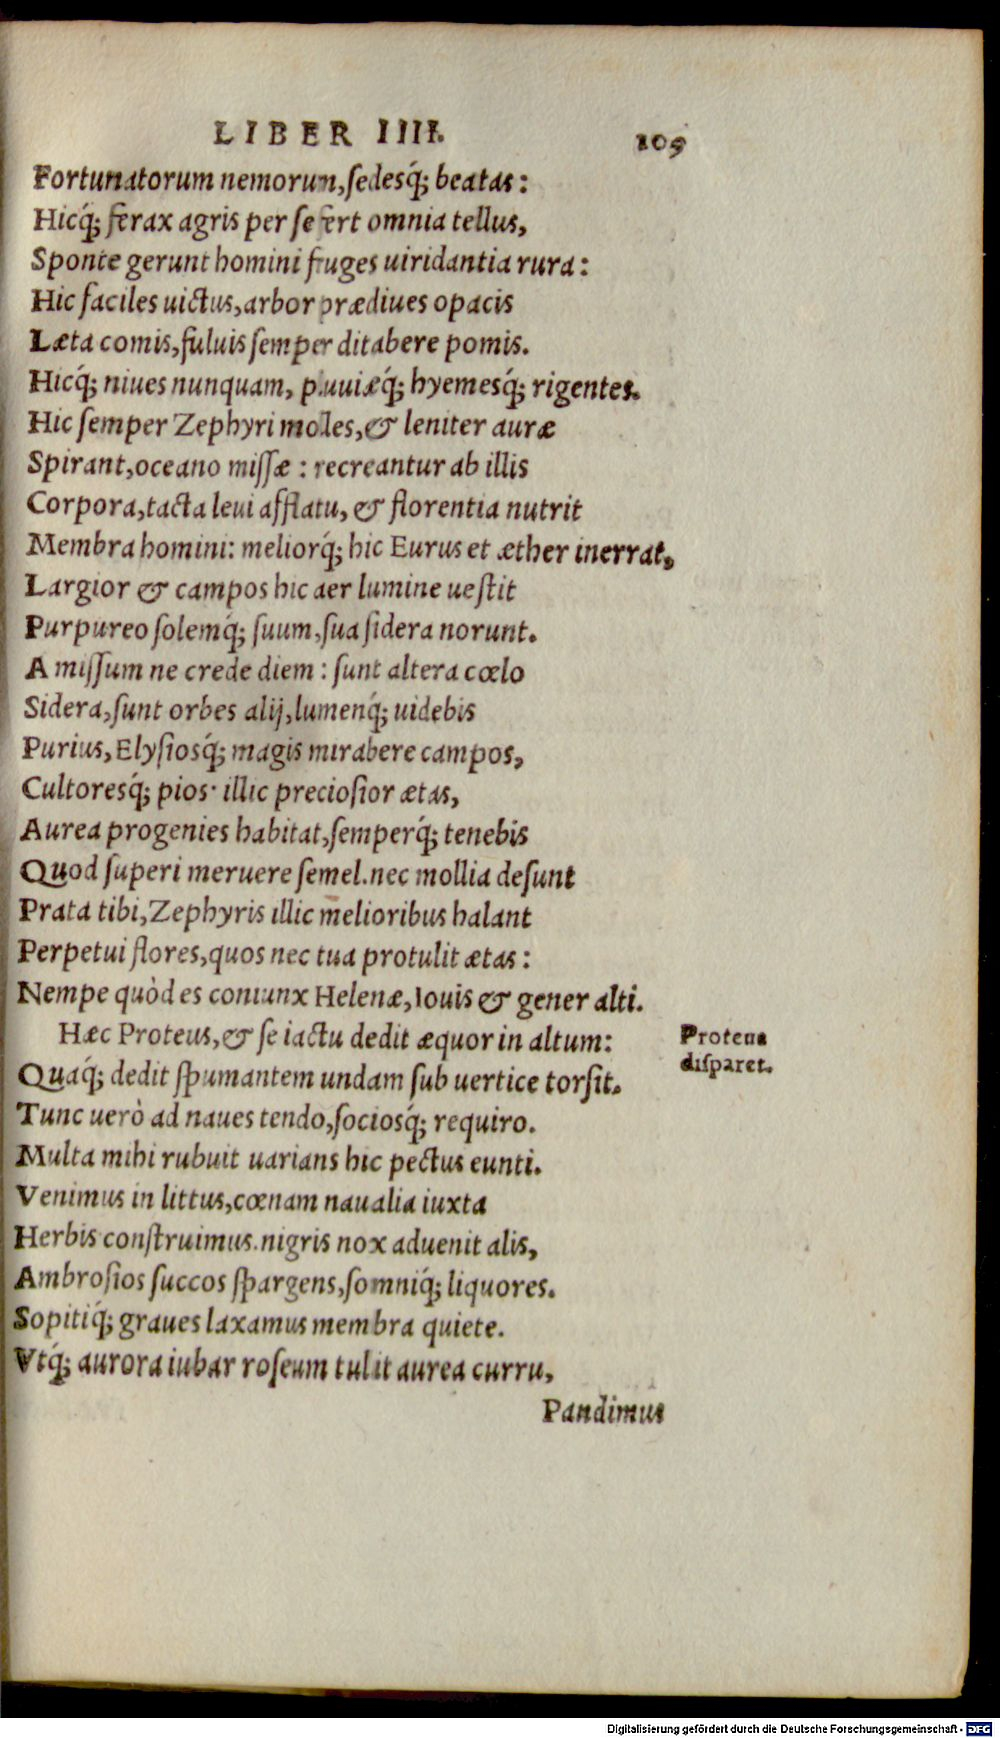 LIBER IIII. 109
Fortunatorum nemorum, ſedesq́; beatas:
Hicq́; ferax agris per ſe fert omnia tellus,
Sponte gerunt homini fruges uiridantia rura:
Hic faciles uictus, arbor prædiues opacis
Læta comis, fuluis ſemper ditabere pomis.
Hicq́; niues nunquam, pluuiæq́; hyemesq́; rigentes.
Hic ſemper Zephyri molles, & leniter auræ
Spirant, oceano miſſæ: recreantur ab illis
Corpora, tacta leui afflatu, & florentia nutrit
Membra homini: meliorq́; hic Eurus et æther inerrat,
Largior & campos hic aer lumine ueſtit
Purpureo ſolemq́; ſuum, ſua ſidera norunt.
Amiſſum ne crede diem: ſunt altera cœlo
Sidera, ſunt orbes alij, lumenq́; uidebis
Purius, Elyſiosq́; magis mirabere campos,
Cultoresq́; pios· illic precioſior ætas,
Aurea progenies habitat, ſemperq́; tenebis
Quod ſuperi meruere ſemel. nec mollia deſunt
Prata tibi, Zephyris illic melioribus halant
Perpetui flores, quos nec tua protulit ætas:
Nempe quòd es coniunx Helenæ, Iouis & gener alti.
Hæc Proteus, & ſe iactu dedit æquor in altum:
Proteus
diſparet.
Quaq́; dedit ſpumantem undam ſub uertice torſit.
Tunc uerò ad naues tendo, ſociosq́; requiro.
Multa mihi rubuit uarians hic pectus eunti.
Venimus in littus, cœnam naualia iuxta
Herbis conſtruimus. nigris nox aduenit alis,
Ambroſios ſuccos ſpargens, ſomniq́; liquores.
Sopitiq́; graues laxamus membra quiete.
Vtq́; aurora iubar roſeum tulit aurea curru,
Pandimus
Digitalisierung gefördert durch die Deutsche Forschungsgemeinschaft - DFG